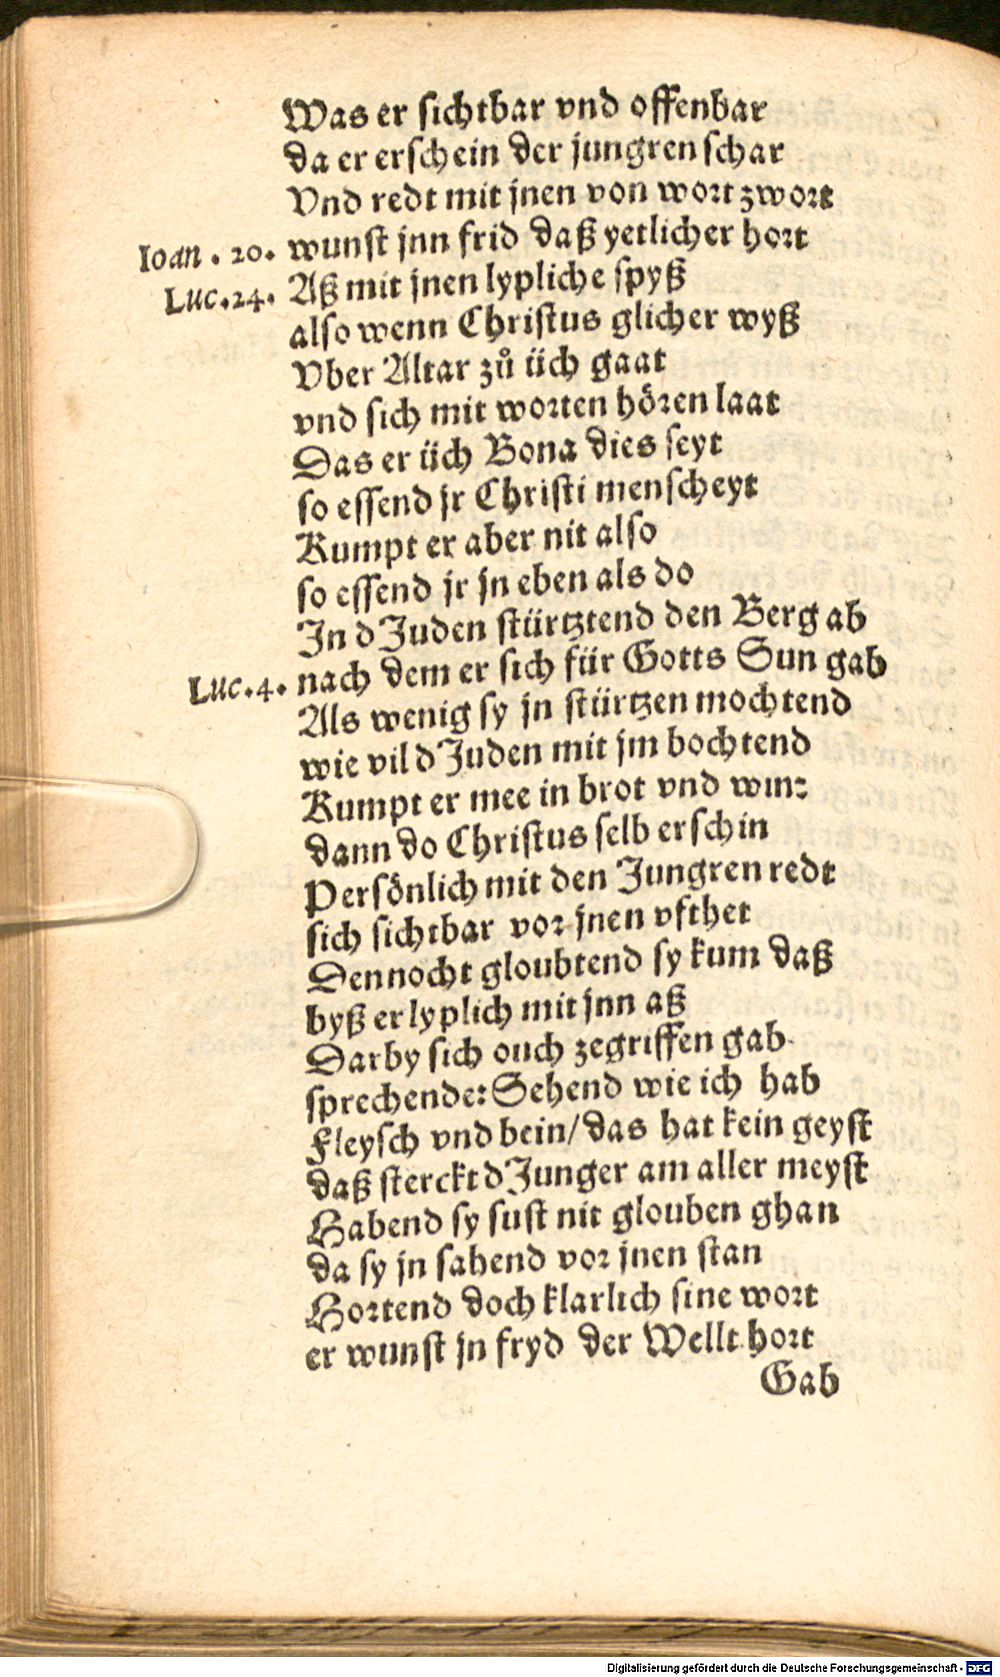 Was er sichtbar vnd offenbar
da er erschein der jungren schar
Vnd redt mit jnen von wort zwort
Ioan . 20. wunst jnn frid daß yetlicher hort
Luc.24. Aß mit jnen lypliche spyß
also wenn Christus glicher wyß
Vber Altar zů üch gaat
vnd sich mit worten hören laat
Das er üch Bona dies seyt
so essend jr Christi menscheyt
Kumpt er aber nit also
so essend jr jn eben als do
In d Juden stürtztend den Berg ab
Luc.4. nach dem er sich für Gotts Sun gab
Als wenig sy jn stürtzen mochtend
wie vil d Juden mit jm bochtend
Kumpt er mee in brot vnd win:
dann do Christus selb erschin
Persönlich mit den Jungren redt
sich sichtbar vor jnen vfthet
Dennocht gloubtend sy kum daß
byß er lyplich mit jnn aß
Darby sich ouch zegriffen gab
sprechende: Sehend wie ich hab
Fleysch vnd bein/ das hat kein geyst
daß sterckt d Junger am aller meyst
Habend sy sust nit glouben ghan
da sy jn sahend vor jnen stan
Hortend doch klarlich sine wort
er wunst jn fryd der Wellt hort
Gab
Digitalisierung gefördert durch die Deutsche Forschungsgemeinschaft - DFG